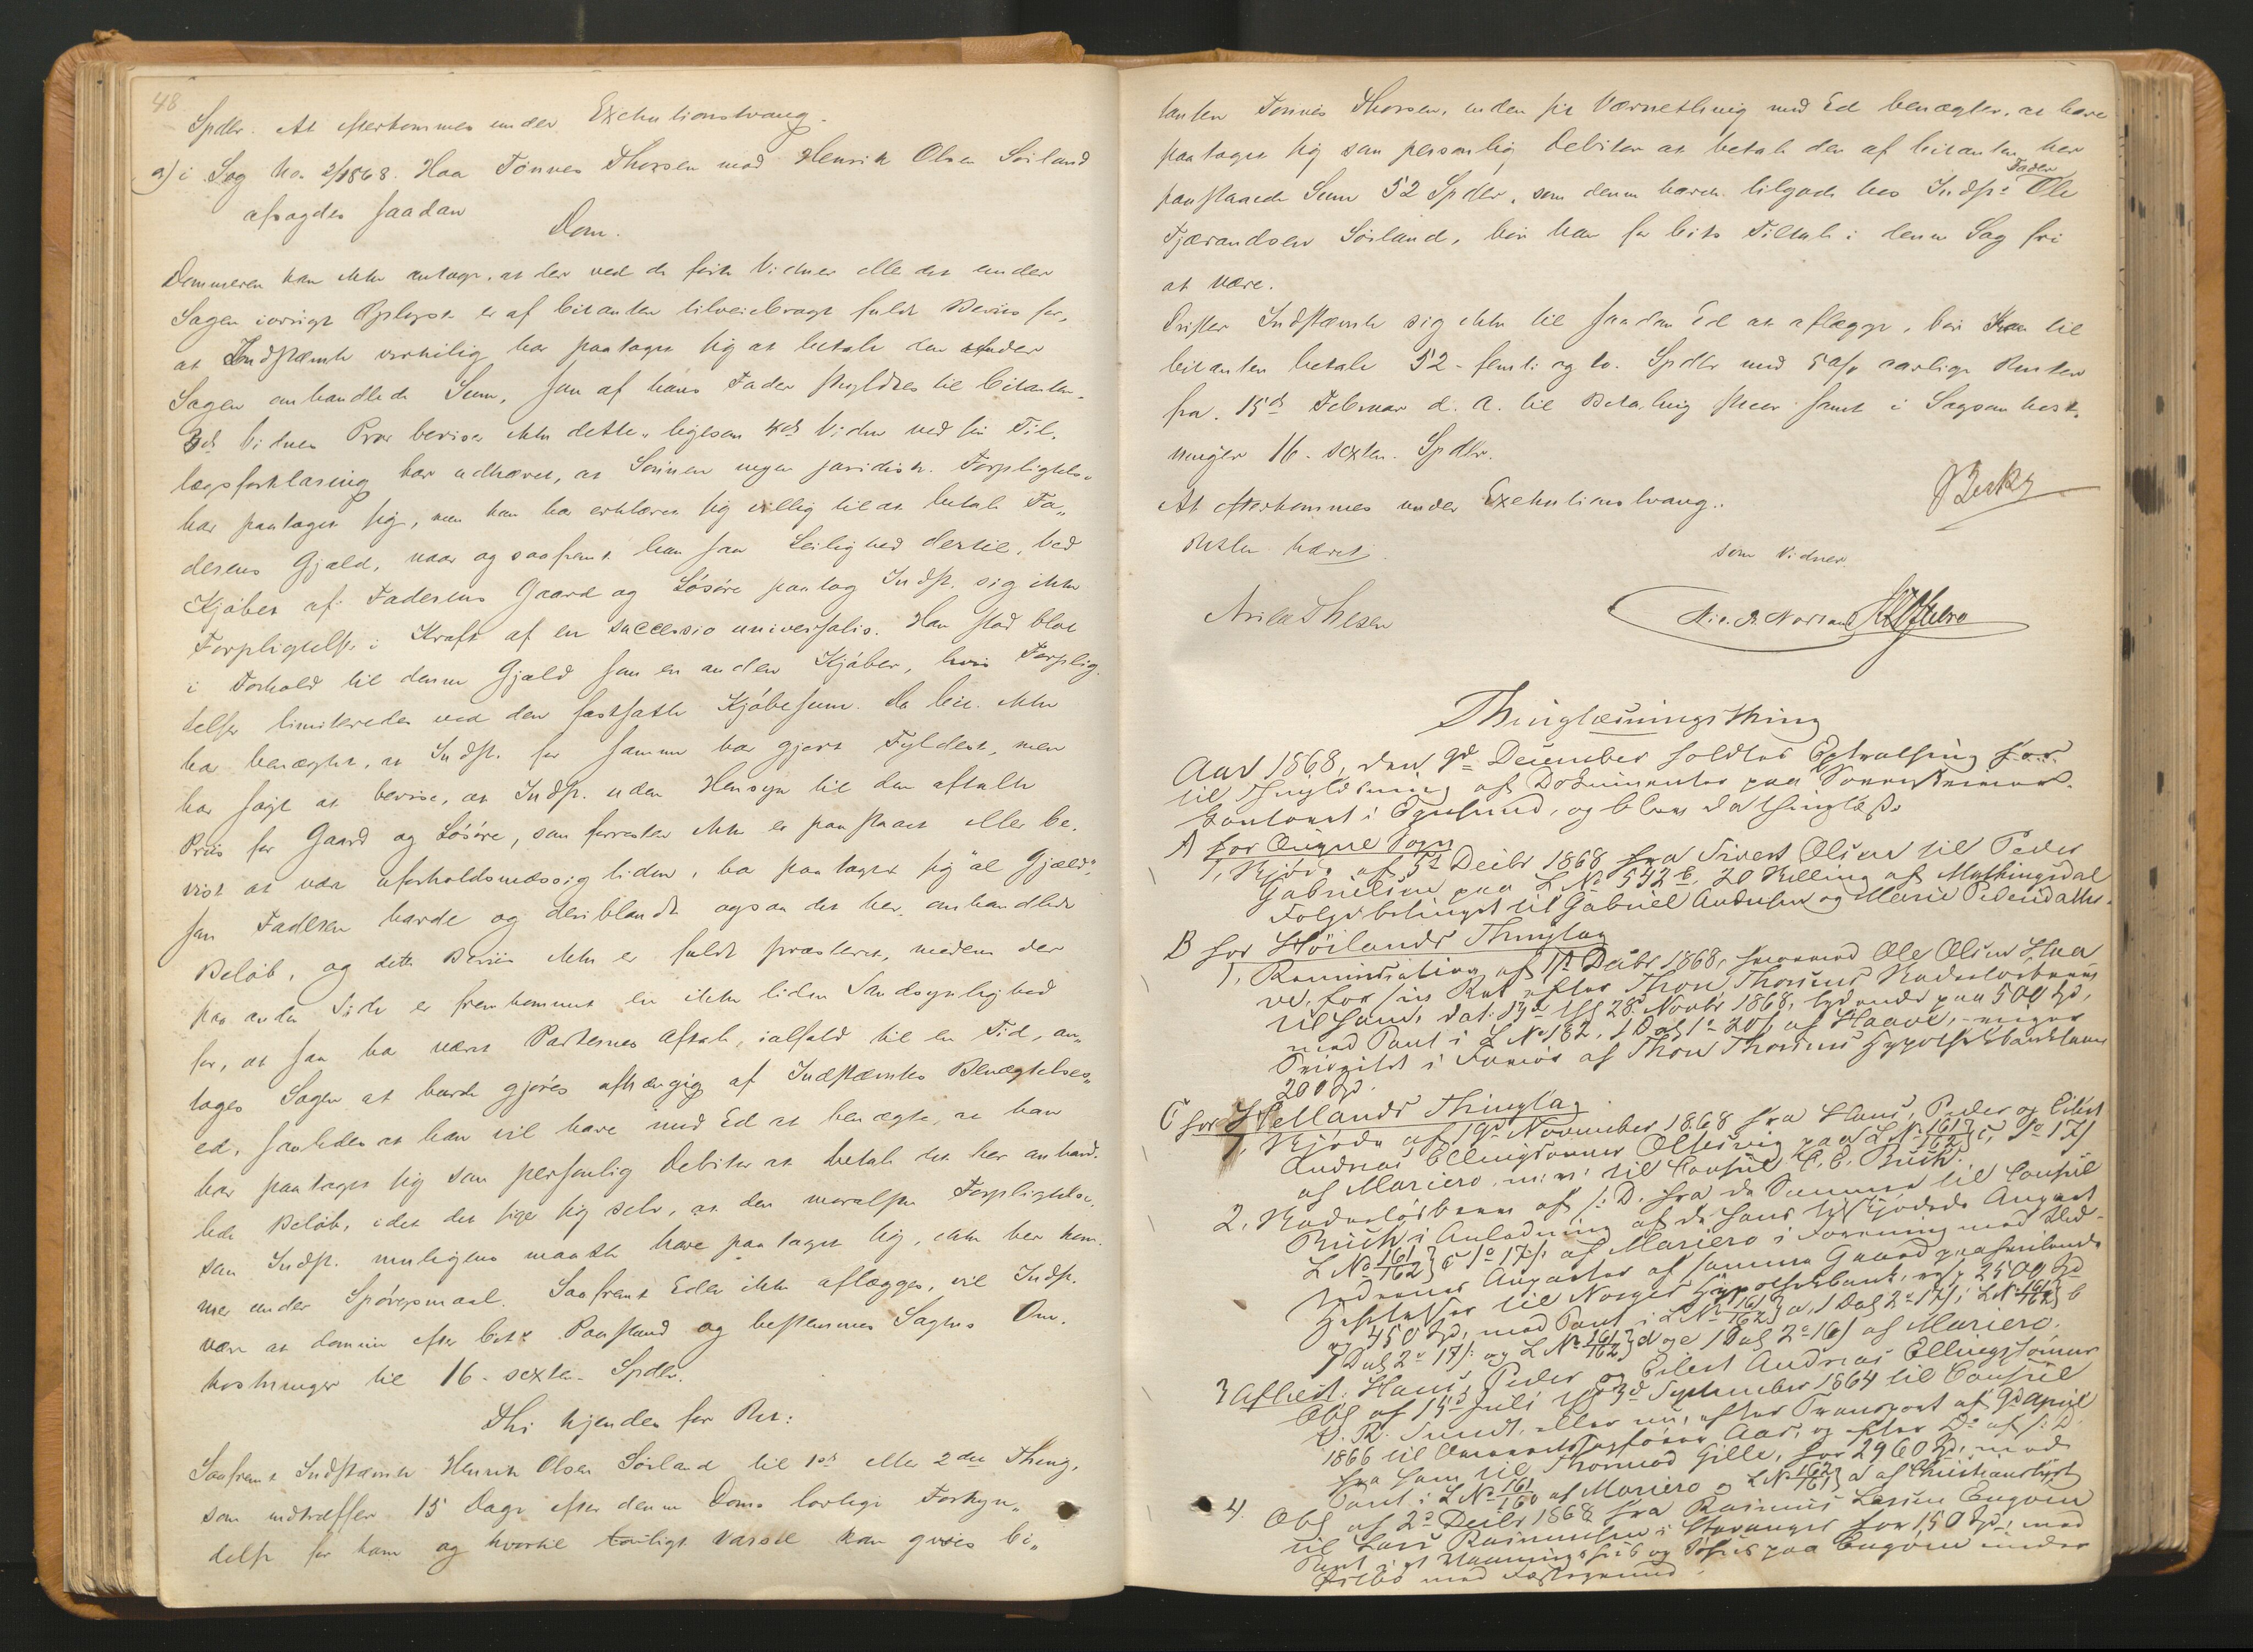 48
Spdlr. At efterkommes under Exekutionstvang.
a) i Sag No. 2/1868. Haa Tønnes Thorsen mod Henrik Olsen Sørland
afsagdes saadan
Dom.
Dommeren kan ikke antage, at der ved de førte Vidner eller det under
Sagen iøvrigt Oplyste er af Citanten tilveiebragt fuldt Beviis for,
at Indstævnte virkelig har paataget sig at betale den under
Sagen omhandlede Sum, som af hans Fader skyldtes til Citanten.
3die Vidnes Prov beviser ikke dette, ligesom 4de Vidne ved sin Til-
lægsforklaring har udhævet, at Sønnen ingen juridisk Forpligtelse
har paataget sig, men kun har erklæret sig villig til at betale Fa-
derens Gjæld, naar og saafremt han faar Leilighed dertil. Ved
Kjøbet af Faderens Gaard og Løsøre paatog Indst. sig ikke
Forpligtelse i Kraft af en successio universalis. Han stod blot
i Forhold til denne Gjæld som en anden Kjøber, hvis Forplig-
telser limiteredes ved den fastsatte Kjøbesum. Da Cit. ikke
har benægtet, at Indst. for samme har gjort Fyldest, men
har søgt at bevise, at Indst. uden Hensyn til den aftalte
Priis for Gaard og Løsøre, som forresten ikke er paastaaet eller be-
vist at være uforholdsmæssig liden, har paataget sig "al Gjæld",
som Faderen havde og deriblandt ogsaa det her omhandlede
Beløb, og dette Beviis ikke er fuldt præsteret, medens der
paa anden Side er fremkommet en ikke liden Sandsynlighed
for, at saa har været Parternes Aftale, ialfald til en Tid, an-
tages Sagen at burde gjøres afhængig af Indstævntes Benægtelses-
ed, saaledes at han vil have med Ed at benægte, at han
har paataget sig som personlig Debitor at betale det her omhand-
lede Beløb, idet det siger sig selv, at den moralske Forpligtelse,
som Indst. muligens maatte have paataget sig, ikke her kom-
mer under Spørgsmaal. Saafremt Eden ikke aflægges, vil Indst.
være at dømme efter Cits Paastand og bestemmes Sagens Om-
kostninger til 16 - sexten - Spdlr.
Thi kjendes for Ret:
Saafremt Indstævnte Henrik Olsen Sørland til 1ste eller 2det Thing,
som indtræffer 15 Dage efter denne Doms lovlige Forkyn-
delse for ham og hvortil lovligt Varsel kan gives Ci-
tanten Tønnes Thorsen, inden sit Værnething med Ed benægter, at have
paataget sig som personlig Debitor at betale den af Citanten her
paastaaede Sum 52 Spdlr, som denne havde tilgode hos Indst.s Fader Ole
Tjærandsen Sørland, bør han for Cits Tiltale i denne Sag fri
at være.
Drister Indstævnte sig ikke til saadan Ed at aflægge, bør han til
Citanten betale 52 - femti og to - Spdlr med 5 o/o aarlige Renter
fra 15de Februar d. A. til Betaling skeer samt i Sagsomkost-
ninger 16 - sexten - Spdlr.
At efterkommes under Exekutionstvang.
Retten hævet.
som Vidner.
Thinglæsningsthing
Aar 1868, den 9de December holdtes Extrathing
til Thinglæsning af Dokumenter paa Sorenskriver-
kontoret i Egersund, og blev da thinglæst
A for Ougne Sogn
1, Skjøde af 5te Decbr 1868 fra Sivert Olsen til Peder
Gabrielsen paa L No 542 b. 20 Skilling af Mathingsdal
Folge betinget til Gabriel Andersen og Marie Pedersdatter
B for Høilands Thinglag
1, Renunciation af 1ste Decbr 1868, hvorved Ole Olsen Haa-
ve, for sin Ret efter Thore Thorsens Skadesløsbrev
til ham, dat. 17de thl. 28de Novbr 1868, lydende paa 500 Spd,
med Pant i L No 182, 1 D af 1 o 20 s af Haave, viger
Prioritet i Faveur af Thore Thorsens Hypothekbanklaan
200 Spd.
C for Hetlands Thinglag
1, Skjøde af 19de November 1868 fra Hans, Peder og Eilert
Andreas Ellingsønner paa L No 161/162 c, 1 o 17 s
af Mariero m. v. til Consul C. C. Buch.
2, Skadesløsbrev af s. D. fra de Samme til Consul
Buch i Anledning af de ham tilskjødede August
L No 161/162 c 1 o 17 s af Mariero i Forening med Sted-
Augusta af samme Gaard paahvilende
Heftelser til Norges Hypothekbank, 2500 Spd
og 450 Spd, med Pant i L No 161/162 a, 1 Dal 2 o 17 s, L No 161/162 b
1 Dal 2 o 17 s og L No 161/162 d og e 1 Dal 2 o 16 s af Mariero.
3 Aflyst: Hans, Peder og Eilert Andreas Ellingsønners
Obl af 15de Juli thl 3de September 1864 til Consul
Sundt, eller nu, efter Transport af 9de April
1866 til Overretssagfører Aas, og efter Do af s. D.
fra ham til Thormod Gille, for 2960 Spd, med
Pant i L No 161/160 af Mariero og L No 162/161 d af Christianslyst
4. Obl af 2de Decbr 1868 fra Rasmus Larsen Engøen
til Lars Rasmussen i Stavanger for 150 Spd, med
Pant i et Vaaningshus og Søhus paa Engøen under
med Fæstegrund.